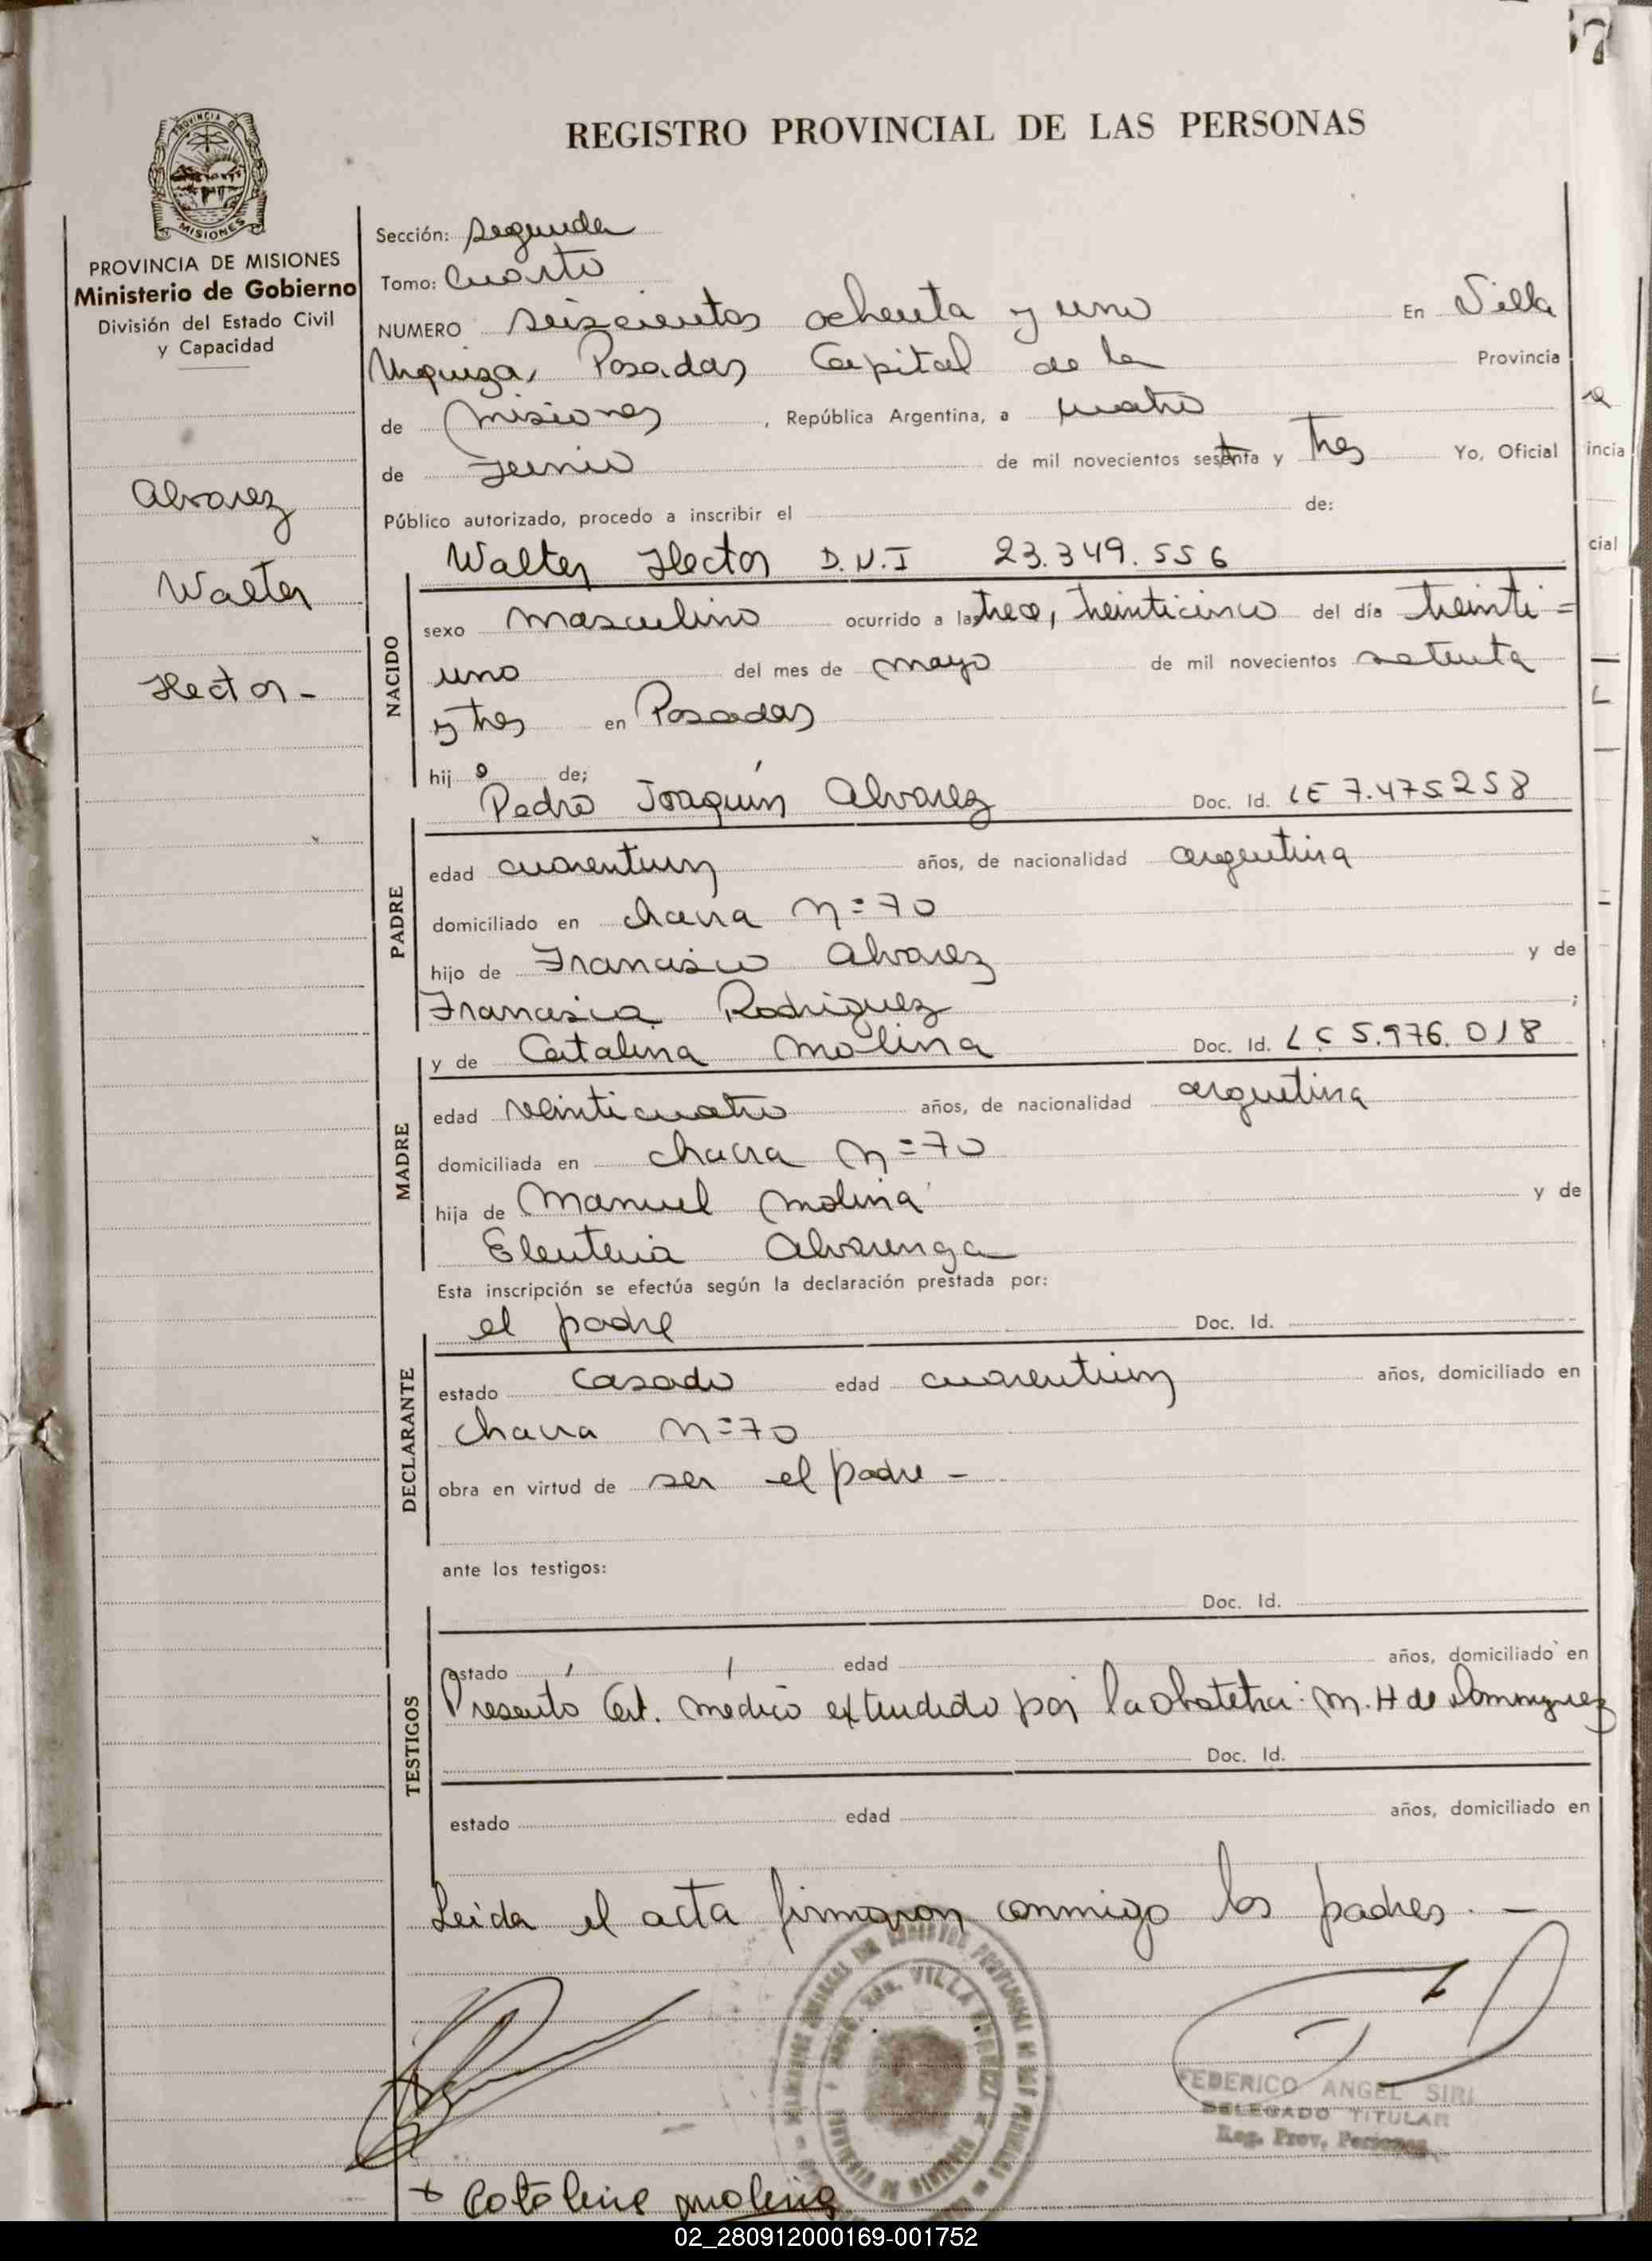 REGISTRO PROVINCIAL DE LAS PERSONAS
PROVINCIA DE MISIONES
Ministerio de Gobierno
División del Estado Civil
y Capacidad
Alvarez
Walter
Hector-
Sección: segunda
Tomo: Cuarto
NUMERO seiscientos ochenta y uno En Villa
Urquiza, Posadas Capital de la Provincia
de misiones, República Argentina, a cuatro
de Junio de mil novecientos setenta y tres Yo, Oficial
Público autorizado, procedo a inscribir el de:
Walter Hector D.N.I 23.349.556
NACIDO
sexo masculino ocurrido a las trece, treinticinco del día treinti=
uno del mes de mayo de mil novecientos setenta
y tres en Posadas
hijo de;
Pedro Joaquín Alvarez Doc. Id. LE 7.475258
PADRE
edad cuarentiun años, de nacionalidad argentina
domiciliado en chacra n=70
hijo de Francisco Alvarez y de
Francisca Rodriguez ;
y de Catalina Molina Doc. Id. LC 5.976.018
MADRE
edad veinticuatro años, de nacionalidad argentina
domiciliada en chacra n=70
hija de Manuel Molina y de
Eleuteria Alvarenga
Esta inscripción se efectúa según la declaración prestada por:
el padre Doc. Id.
DECLARANTE
estado casado edad cuarentiun años, domiciliado en
chacra n=70
obra en virtud de ser el padre -
ante los testigos:
Doc. Id.
TESTIGOS
estado edad años, domiciliado en
Presentó Cert. médico extendido por la obstetra: M. H de Dominguez
Doc. Id.
estado edad años, domiciliado en
Leida el acta firmaron conmigo los padres. -
FEDERICO ANGEL SIRI
DELEGADO TITULAR
Reg. Prov. Personas
Catalina Molina
02_280912000169-001752